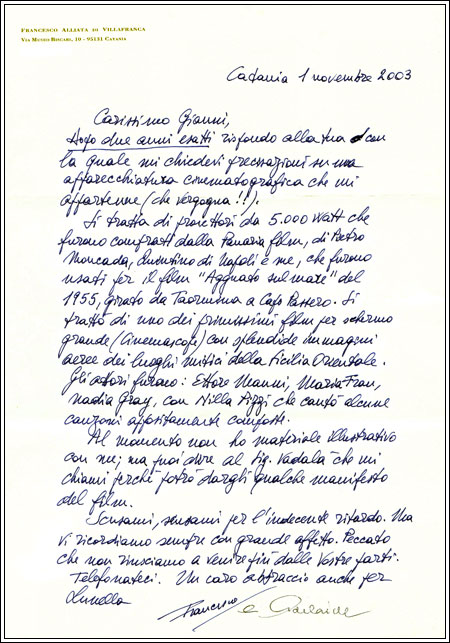 FRANCESCO ALLIATA DI VILLAFRANCA
VIA MUSEO BISCARI, 10 - 95131 CATANIA
Catania 1 novembre 2003
Carissimo Gianni,
dopo due anni esatti rispondo alla tua con
la quale mi chiedevi precisazioni su una
apparecchiatura cinematografica che mi
appartenne (che vergogna!!).
Si tratta di proiettori da 5.000 Watt che
furono comprati dalla Panaria film, di Pietro
Moncada, Quintino di Napoli e me, che furono
usati per il film "Agguato sul mare" del
1955, girato da Taormina a Capo Passero. Si
trattò di uno dei primissimi film per schermo
grande (Cinemascope) con splendide immagini
aeree dei luoghi mitici della Sicilia Orientale.
Gli attori furono: Ettore Manni, Maria Frau,
Nadia Gray, con Nilla Pizzi che cantò alcune
canzoni appositamente composte.
Al momento non ho materiale illustrativo
con me; ma puoi dire al Sig. Vadalà che mi
chiami perché potrò dargli qualche manifesto
del film.
Scusami, scusami per l'indecente ritardo. Ma
vi ricordiamo sempre con grande affetto. Peccato
che non riusciamo a venire più dalle Vostre parti.
Telefonateci. Un caro abbraccio anche per
Lunella
Francesco e